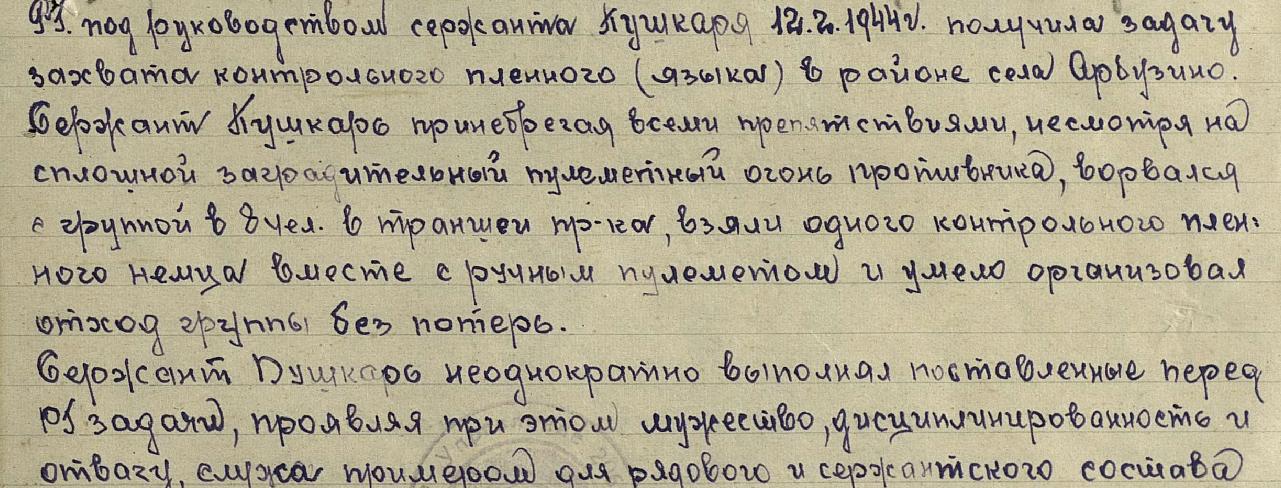 РГ. под руководством сержанта Пушкаря 12.2.1944г. получила задачу
захвата контрольного пленного (языка) в районе села Арбузино.
Сержант Пушкарь принебрегая всеми препятствиями, несмотря на
сплошной заградительный пулеметный огонь противника, ворвался
с группой в 8 чел. в траншеи пр-ка, взяли одного контрольного плен-
ного немца вместе с ручным пулеметом и умело организовал
отход группы без потерь.
Сержант Пушкарь неоднократно выполнял поставленные перед
РГ задачи, проявляя при этом мужество, дисциплинированность и
отвагу, служа примером для рядового и сержантского состава